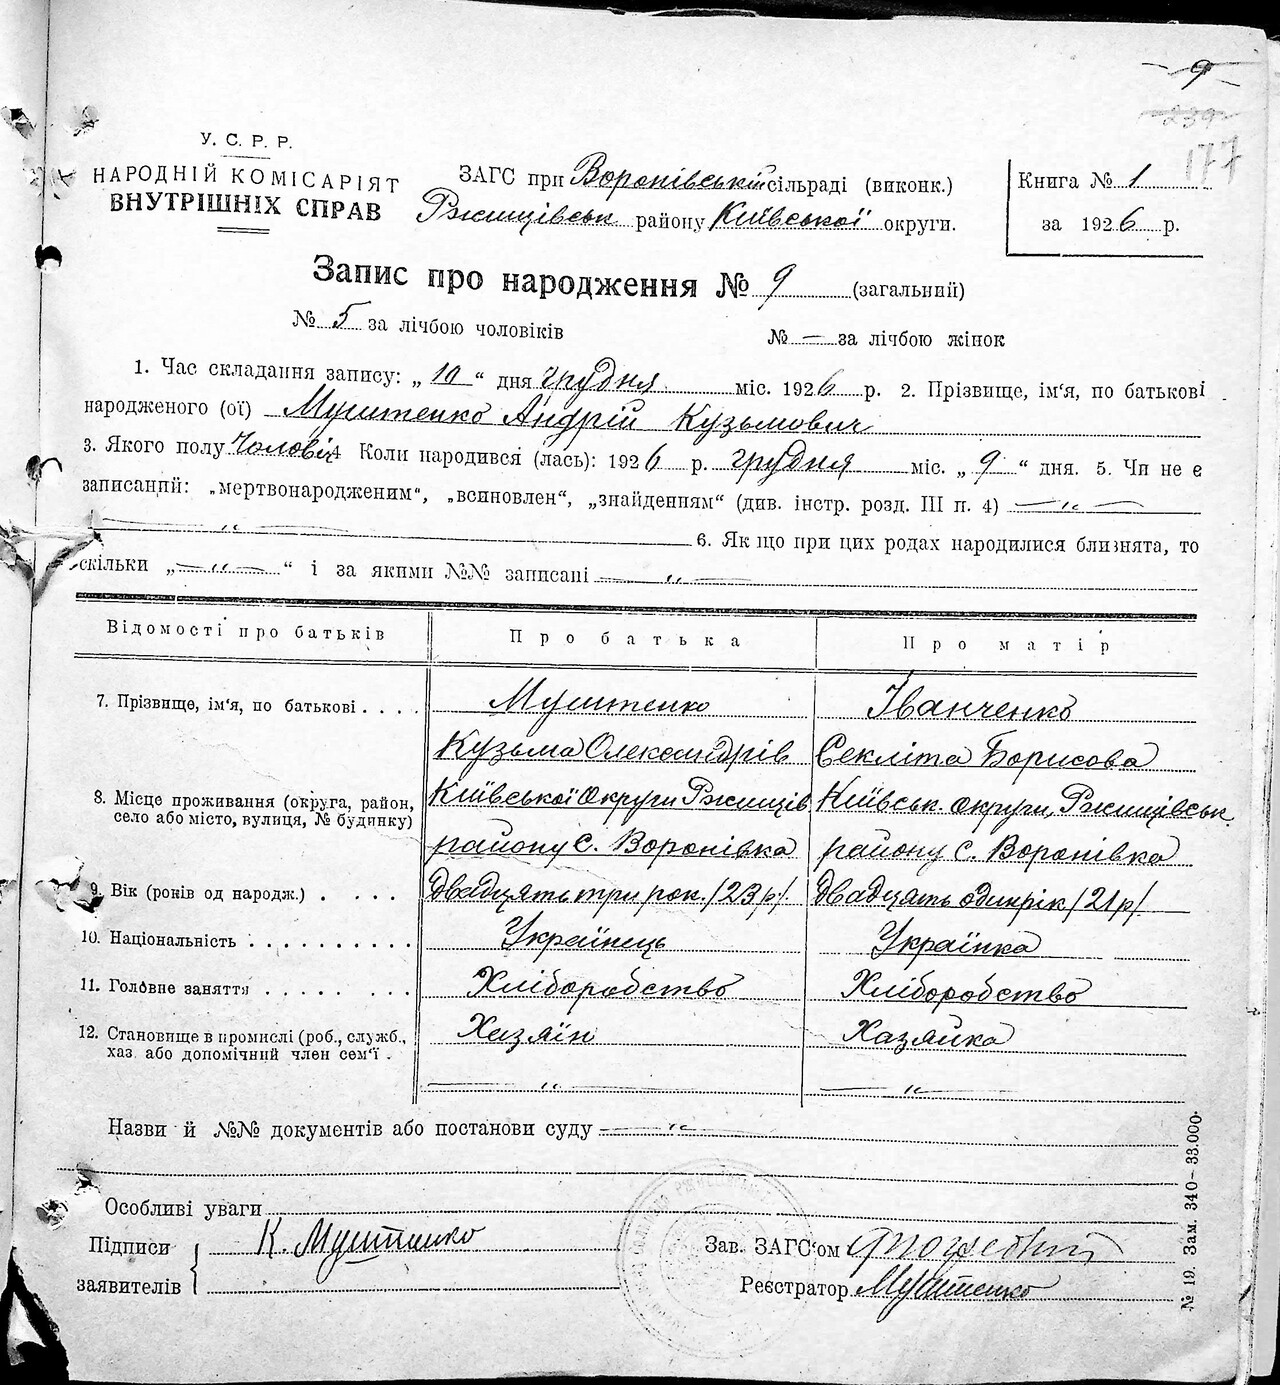 - 9 -
239
177
У. С. Р. Р.
НАРОДНІЙ КОМІСАРІЯТ
ВНУТРІШНІХ СПРАВ
ЗАГС при Воронівській сільраді (виконк.)
Ржищівськ району Київської округи.
Книга № 1
за 1926 р.
Запис про народження № 9 (загальний)
№ 5 за лічбою чоловіків № — за лічбою жінок
1. Час складання запису: „ 10 “ дня грудня міс. 1926 р. 2. Прізвище, ім'я, по батькові
народженого (ої) Муштенко Андрій Кузьмович
3. Якого полу Чоловіч 4 Коли народився (лась): 1926 р. грудня міс. „ 9 “ дня. 5. Чи не є
записаний: „мертвонародженим“, „всиновлен“, „знайденням“ (див. інстр. розд. III п. 4) — „ —
— „ — 6. Якщо при цих родах народилися близнята, то
скільки „— „ —“ і за якими №№ записані — „ —
Відомості про батьків Про батька Про матір
7. Прізвище, ім'я, по батькові . . . . Муштенко Іванченко
Кузьма Олександрів Секліта Борисова
8. Місце проживання (округа, район, Київської Округи Ржищів Київськ. округи, Ржищівськ.
село або місто, вулиця, № будинку) району с. Воронівка району с. Воронівка
9. Вік (років од народж.) . . . . Двадцять три рок. /23 р/. Двадцять один рік /21 р/
10. Національність . . . . . . . . . . Українець Українка
11. Головне заняття . . . . . . . . Хліборобство Хліборобство
12. Становище в промислі (роб., служб., Хазяїн Хазяйка
хаз. або допомічний член сем'ї . — „ — — „ —
Назви й №№ документів або постанови суду — „ —
Особливі уваги
Підписи К. Муштенко Зав. ЗАГС'ом
заявителів Реєстратор Муштенко
№ 19. Зам. 340–33.000.